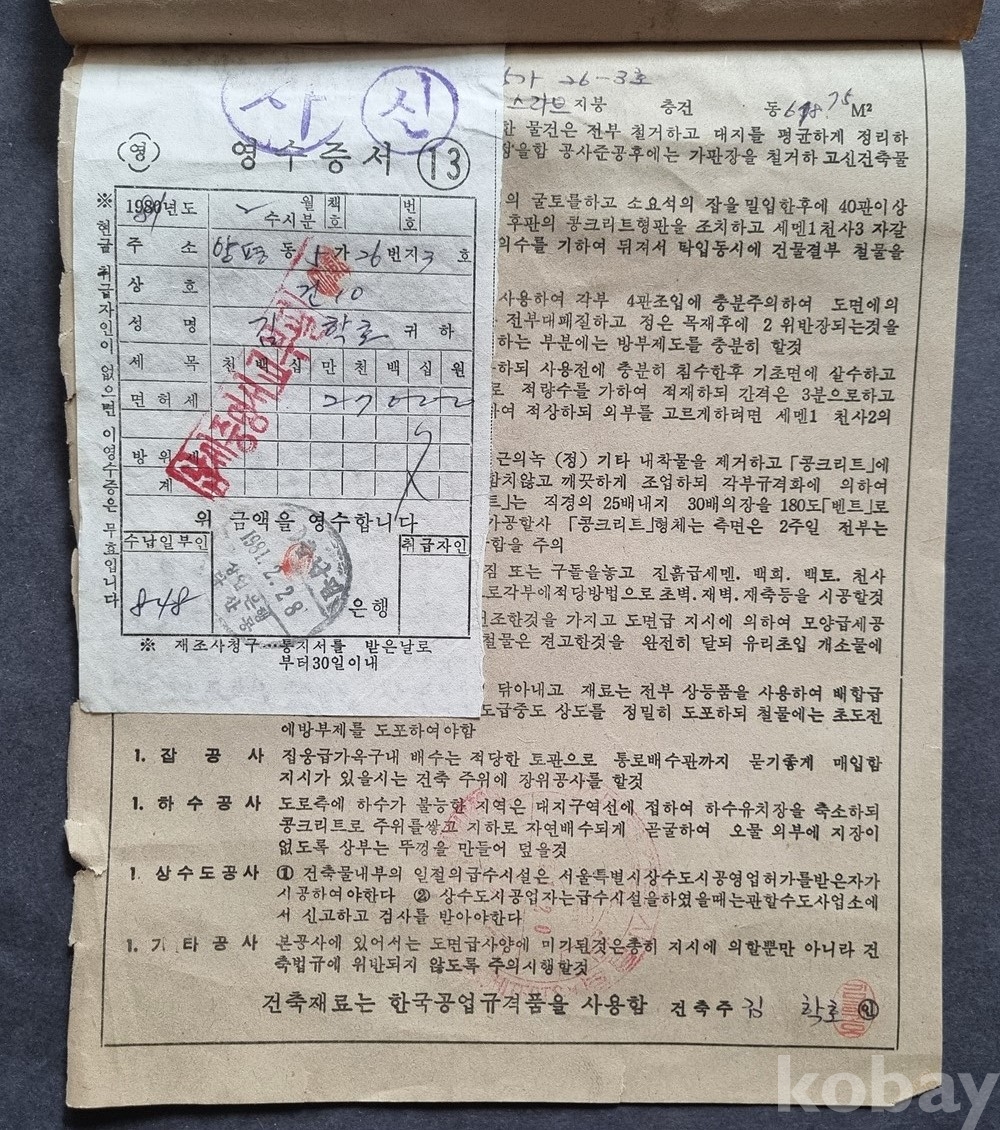 사 신
영 영수증서 13
1980년도 81 수시분 월 책 호 번 호
주 소 양평 동 1 가 26 번지 3 호
상 호 건 10
성 명 김 학로 귀 하
세 목 천 백 십 만 천 백 십 원
면 허 세 27000
방 위 세
계
위 금액을 영수합니다
수납일부인 취급자인
1981. 2. 28
848 은행
※ 재조사청구…통지서를 받은날로
부터30일이내
※ 현금 취급자인이 없으면 이영수증은 무효입니다
5가 26-3호
스라브 지붕 층건 동 678.75 M²
한 물건은 전부 철거하고 대지를 평균하게 정리하
공사준공후에는 가판장을 철거하 고신건축물
의 굴토를하고 소요석의 잡을 밀입한후에 40관이상
후판의 콩크리트형판을 조치하고 세멘1 천사3 자갈
의수를 기하여 뒤져서 탁입동시에 건물결부 철물을
사용하여 각부 4관조입에 충분주의하여 도면에의
전부대패질하고 정은 목재후에 2 위반장되는것을
하는 부분에는 방부제도를 충분히 할것
하되 사용전에 충분히 침수한후 기초면에 살수하고
로 적량수를 가하여 적재하되 간격은 3분으로하고
하여 적상하되 외부를 고르게하려면 세멘1 천사2의
근의녹 (정) 기타 내착물을 제거하고 「콩크리트」에
합치않고 깨끗하게 조업하되 각부규격화에 의하여
트」는 직경의 25배내지 30배의장을 180도「벤트」로
가공할사 「콩크리트」형체는 측면은 2주일 전부는
합을 주의
짐 또는 구돌을놓고 진흙급세멘. 백회. 백토. 천사
로각부에적당방법으로초벽.재벽.재축등을 시공할것
조한것을 가지고 도면급 지시에 의하여 모양급세공
철물은 견고한것을 완전히 달되 유리초입 개소물에
닦아내고 재료는 전부 상등품을 사용하여 배합급
도급중도 상도를 정밀히 도포하되 철물에는 초도전
에방부제를 도포하여야함
1. 잡 공 사 집응급가옥구내 배수는 적당한 토관으로 통로배수관까지 묻기좋게 매입함
지시가 있을시는 건축 주위에 장위공사를 할것
1. 하 수 공 사 도로측에 하수가 불능한 지역은 대지구역선에 접하여 하수유치장을 축소하되
콩크리트로 주위를쌓고 지하로 자연배수되게 곧굴하여 오물 외부에 지장이
없도록 상부는 뚜껑을 만들어 덮을것
1. 상수도공사 ① 건축물내부의 일절의급수시설은 서울특별시상수도시공영업허가를받은자가
시공하여야한다 ② 상수도시공업자는급수시설을하였을때는관할수도사업소에
서 신고하고 검사를 받아야한다
1. 기 타 공 사 본공사에 있어서는 도면급사양에 미기된것은총히 지시에 의할뿐만 아니라 건
축법규에 위반되지 않도록 주의시행할것
건축재료는 한국공업규격품을 사용함 건축주 김 학로 인
kobay